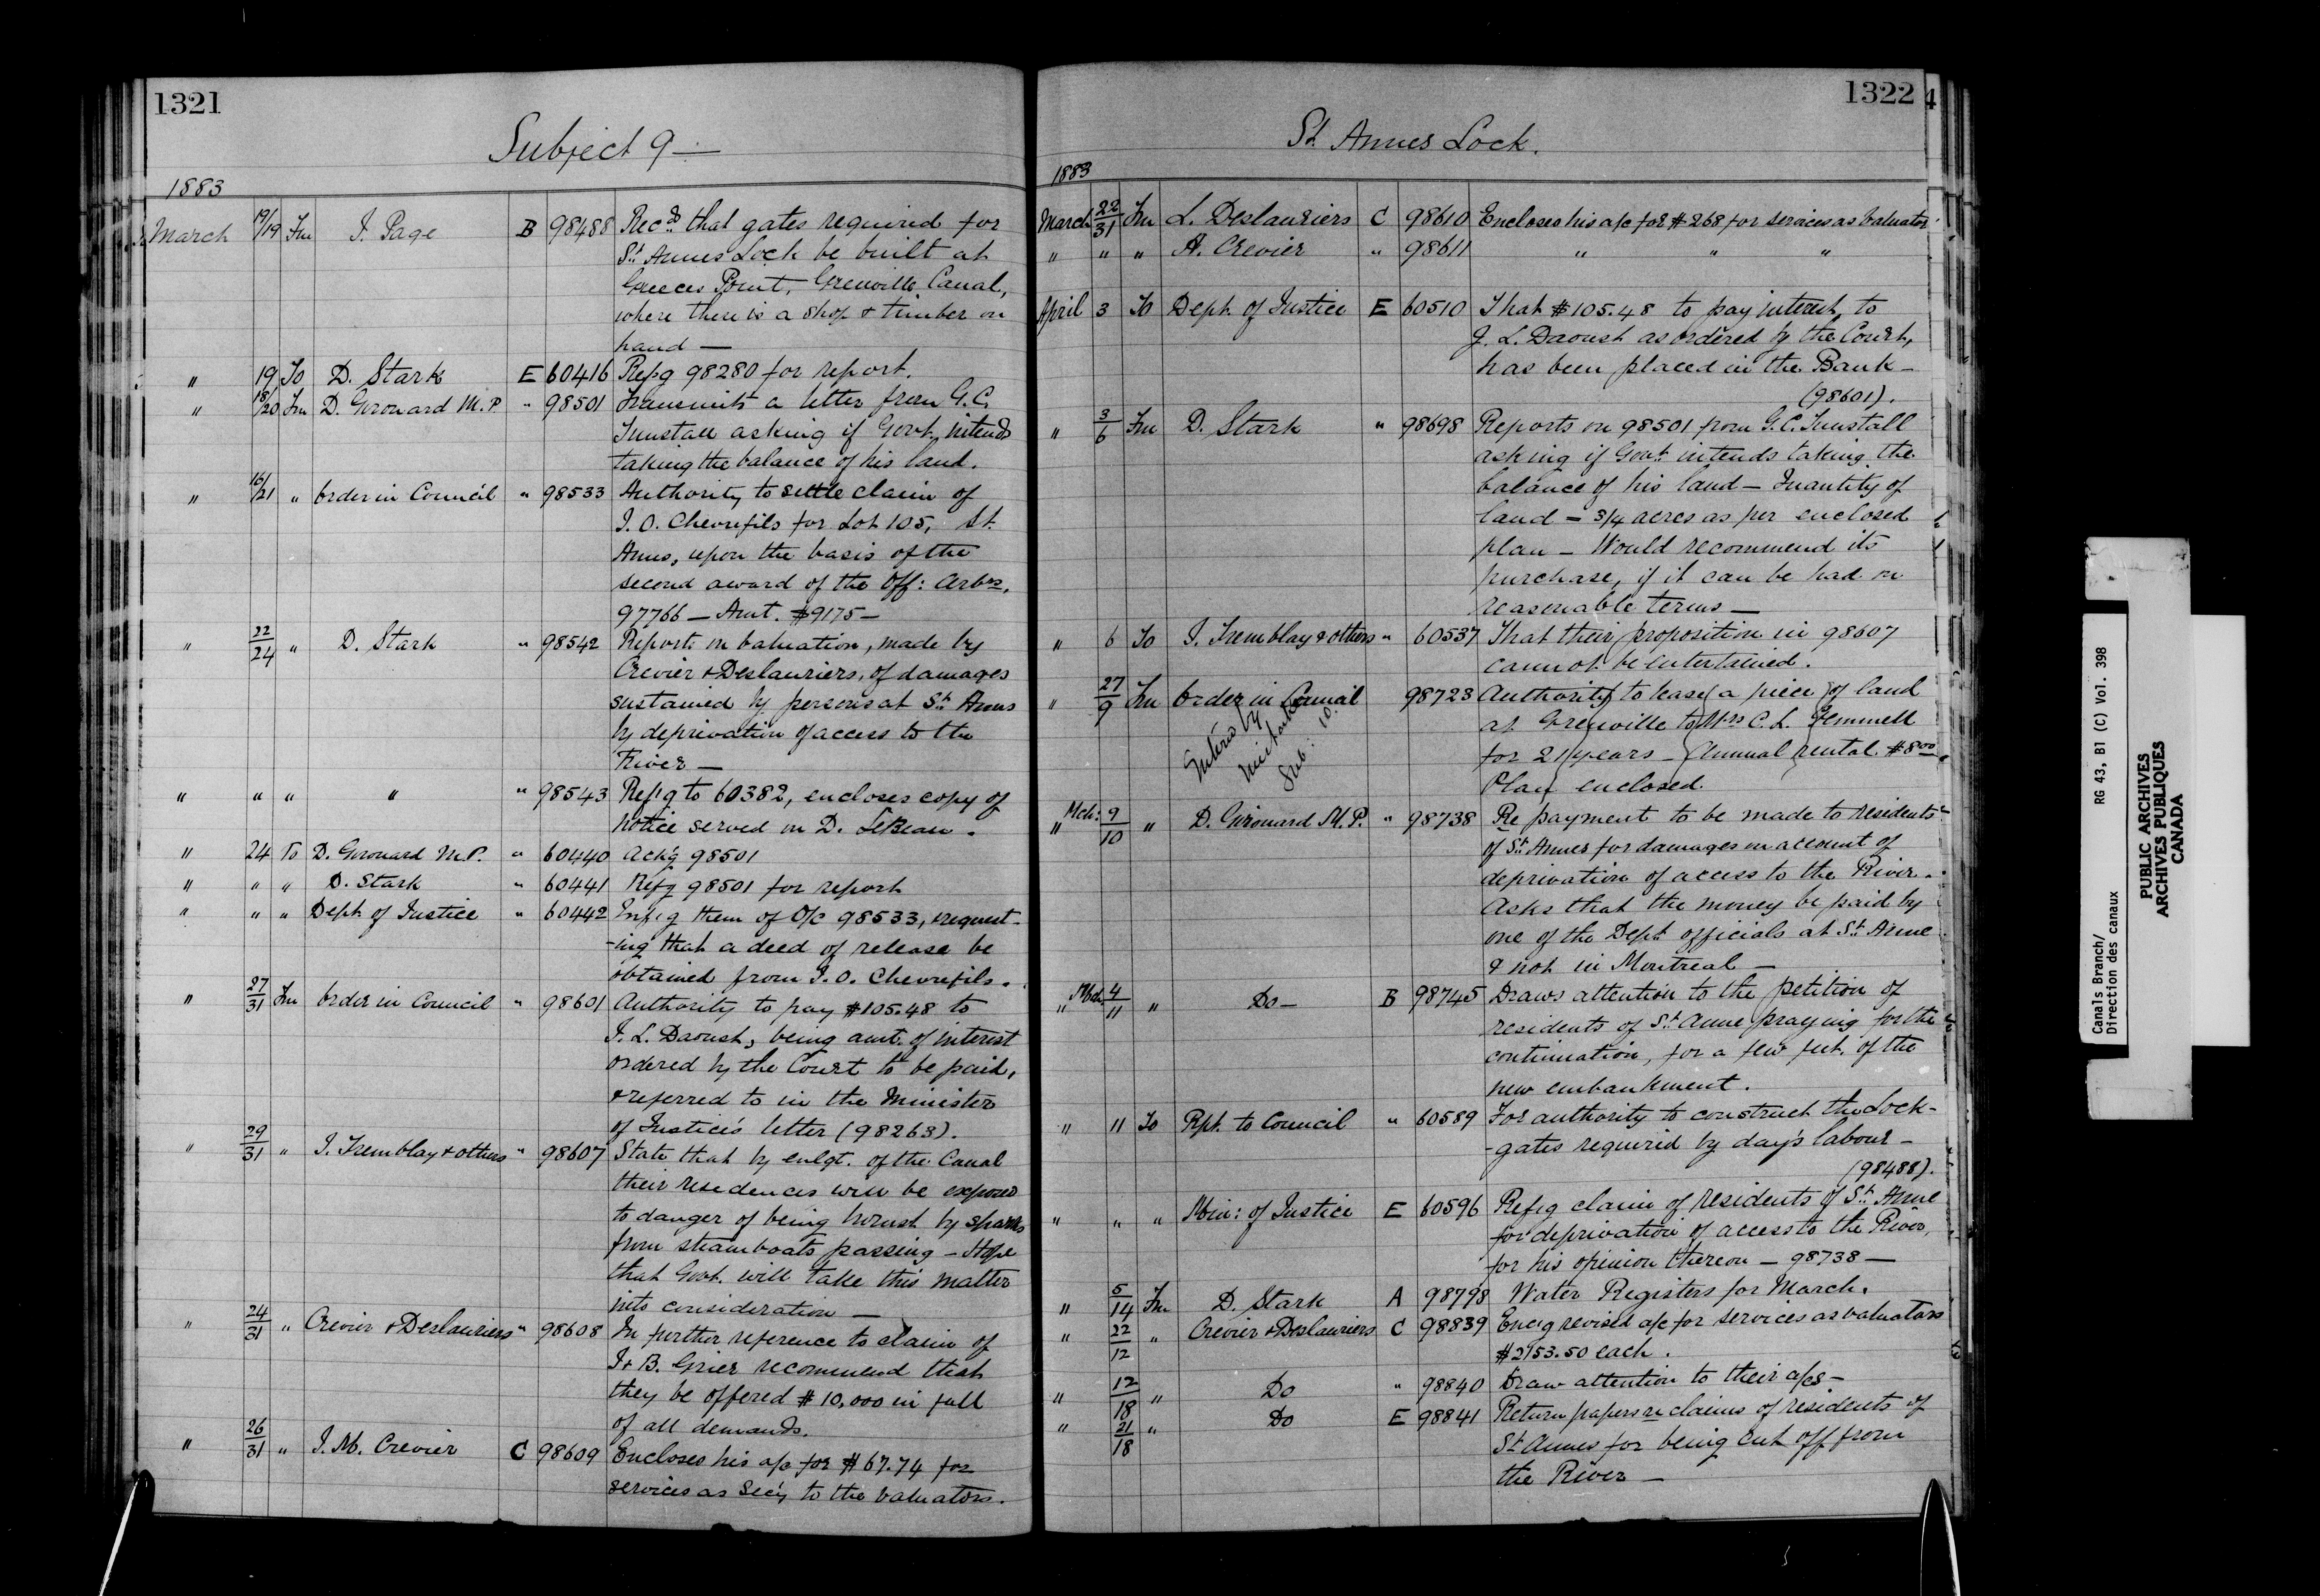 1321
Subject 9 —
1883
March 19/19 Fm J. Page B 98488 Recds that gates required for
St. Annes Lock be built at
Greeces Point, Grenville Canal,
where there is a shop & timber on
hand —
" 19 To D. Stark E 60416 Refg 98280 for report.
" 18/20 Fm D. Girouard M.P. " 98501 Transmits a letter from G.C.
Tunstall asking if Govt. intends
taking the balance of his land.
" 16/21 " Order in Council " 98533 Authority to settle claim of
J. O. Chevrefils for Lot 105, St.
Annes, upon the basis of the
second award of the Off: Arbrs.
97766 — Amt. $9175 —
" 22/24 " D. Stark " 98542 Report: on valuation, made by
Crevier & Deslauriers, of damages
sustained by persons at St. Annes
by deprivation of access to the
River —
" " " " " 98543 Refg to 60382, encloses copy of
notice served on D. LeBeau.
" 24 To D. Girouard M.P. " 60440 Ackg 98501
" " " D. Stark " 60441 Refg 98501 for report
" " " Dept. of Justice " 60442 Infg them of O/c 98533, & request-
-ing that a deed of release be
obtained from J. O. Chevrefils.
" 27/31 Fm Order in Council " 98601 Authority to pay $105.48 to
J. L. Daoust, being amt. of interest
ordered by the Court to be paid,
& referred to in the Minister
of Justice's letter (98263).
" 29/31 " J. Tremblay & others " 98607 State that by enlgt. of the Canal
their residences will be exposed
to danger of being burnt by sparks
from steamboats passing — Hope
that Govt. will take this matter
into consideration —
" 24/31 " Crevier & Deslauriers " 98608 In further reference to claim of
J & B. Grier recommend that
they be offered $10,000 in full
of all demands.
" 26/31 " J. M. Crevier C 98609 Encloses his a/c for $67.74 for
services as Secy to the valuators.
1322
4
St. Annes Lock.
1883
March 22/31 Fm L. Deslauriers C 98610 Encloses his a/c for $268 for services as valuator
" " " A. Crevier " 98611 " " "
April 3 To Dept. of Justice E 60510 That $105.48 to pay interest, to
J. L. Daoust as ordered by the Court,
has been placed in the Bank —
(98601).
" 3/6 Fm D. Stark " 98698 Reports on 98501 from G.C. Tunstall
asking if Govt. intends taking the
balance of his land — Quantity of
land = 3/4 acres as per enclosed
plan — Would recommend its
purchase, if it can be had on
reasonable terms —
" 6 To J. Tremblay & others " 60537 That their proposition in 98607
cannot be entertained.
" 27/9 Fm Order in Council 98723 Authority to lease a piece of land
at Grenville to Mrs C. L. Gemmell
for 21 years — Annual rental $8.00
Plan enclosed.
Entered by
mistake
Sub. 10.
" Mch: 9/10 " D. Girouard M.P. " 98738 Re payment to be made to residents
of St. Annes for damages on account of
deprivation of access to the River.
Asks that the money be paid by
one of the Dept. officials at St. Anne
& not in Montreal —
" Mch 4/11 " Do — B 98745 Draws attention to the petition of
residents of St. Anne praying for the
continuation, for a few feet. of the
new embankment.
" 11 To Rpt. to Council " 60589 For authority to construct the Lock-
-gates required by day's labour —
(98488).
" " " Min: of Justice E 60596 Refg claim of residents of St. Anne
for deprivation of access to the River,
for his opinion thereon — 98738 —
" 5/14 Fm D. Stark A 98798 Water Registers for March.
" 22/12 " Crevier & Deslauriers C 98839 Encg revised a/c for services as valuators
$2753.50 each.
" 12/18 " Do " 98840 Draw attention to their a/cs —
" 21/18 " Do E 98841 Return papers re claims of residents of
St Annes for being cut off from
the River —
Canals Branch/
Direction des canaux
RG 43, B1 (C) Vol. 398
PUBLIC ARCHIVES
ARCHIVES PUBLIQUES
CANADA